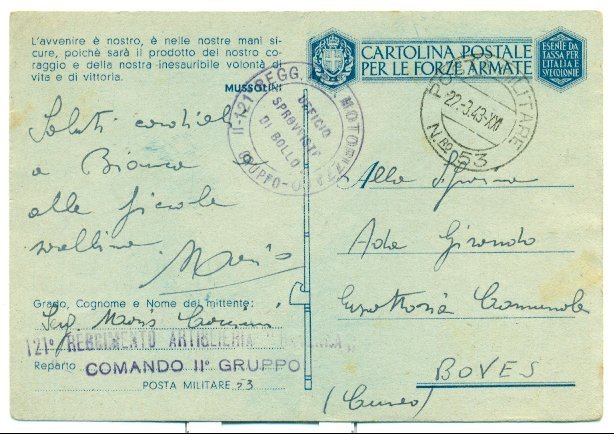 L'avvenire è nostro, è nelle nostre mani si-
cure, poichè sarà il prodotto del nostro co-
raggio e della nostra inesauribile volontà di
vita e di vittoria.
MUSSOLINI
CARTOLINA POSTALE
PER LE FORZE ARMATE
ESENTE DA
TASSA PER
L'ITALIA E
SUE COLONIE
II-121° REGG. MOTORIZZATA
GRUPPO
UFFICIO
SPROVVISTA
DI BOLLO
POSTA MILITARE
22.3.43-XXI
N.RO 53
Saluti cordiali
a Bianca
alle piccole
Mario
Alla Sig.rina
Ada Girondo
Esattoria Comunale
BOVES
(Cuneo)
Grado, Cognome e Nome del mittente:
Serg. Mario
121° REGGIMENTO ARTIGLIERIA
Reparto COMANDO II° GRUPPO
POSTA MILITARE 53